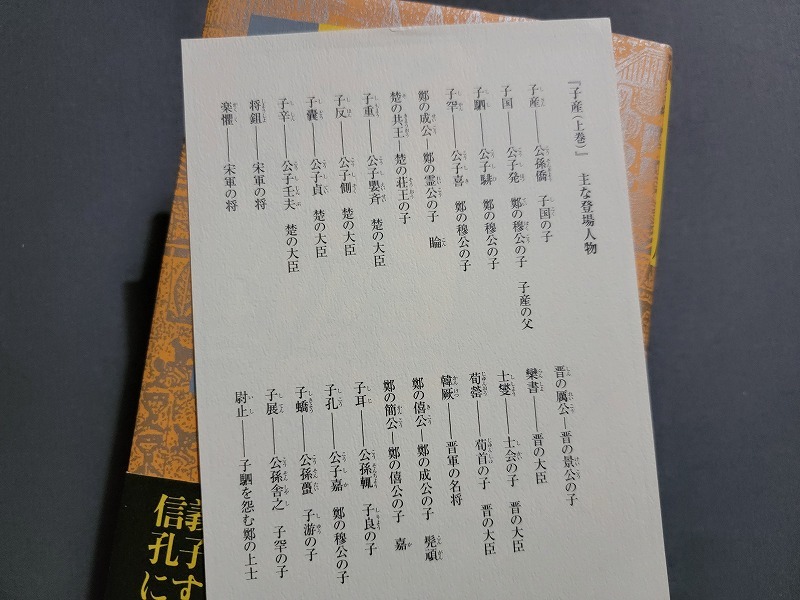 『子産（上巻）』 主な登場人物
子産――公孫僑 子国の子
子国――公子発 鄭の穆公の子 子産の父
子駟――公子騑 鄭の穆公の子
子罕――公子喜 鄭の穆公の子
鄭の成公―鄭の霊公の子 睔
楚の共王―楚の荘王の子
子重――公子嬰斉 楚の大臣
子反――公子側 楚の大臣
子嚢――公子貞 楚の大臣
子辛――公子壬夫 楚の大臣
将鉏――宋軍の将
楽懼――宋軍の将
晋の厲公―晋の景公の子
欒書――晋の大臣
士燮――士会の子 晋の大臣
荀罃――荀首の子 晋の大臣
韓厥――晋軍の名将
鄭の僖公―鄭の成公の子 髠頑
鄭の簡公―鄭の僖公の子 嘉
子耳――公孫輒 子良の子
子孔――公子嘉 鄭の穆公の子
子蟜――公孫蠆 子游の子
子展――公孫舎之 子罕の子
尉止――子駟を怨む鄭の上士
義子す
信孔に